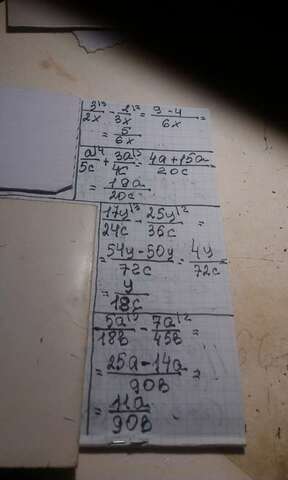 3^{\3}/2x - 2^{\2}/3x = 9-4/6x =
= 5/6x
a^{\4}/5c + 3a^{\5}/4c = 4a+15a/20c
= 19a/20c.
17y^{\3}/24c - 25y^{\2}/36c =
= 54y-50y/72c = 4y/72c =
= y/18c
5a^{\5}/18b - 7a^{\2}/45b =
= 25a-14a/90b =
= 11a/90b